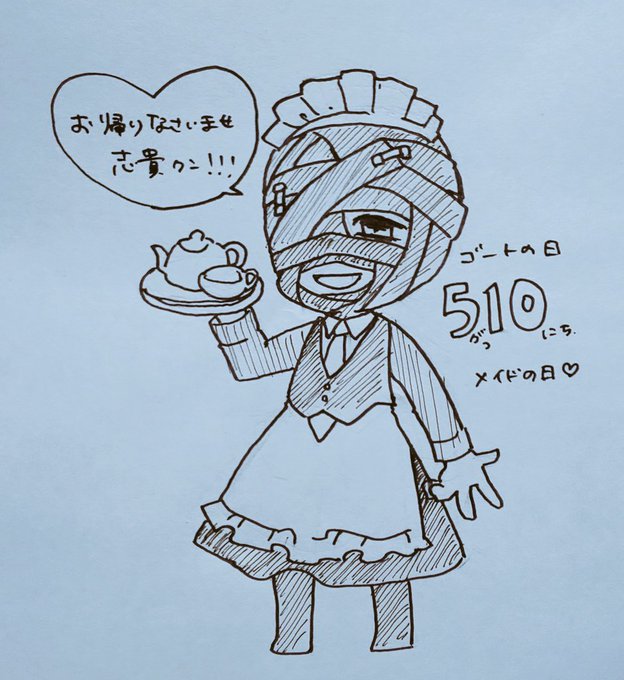 お帰りなさいませ
志貴クン!!!
ゴートの日
510
がつ
にち
メイドの日♡